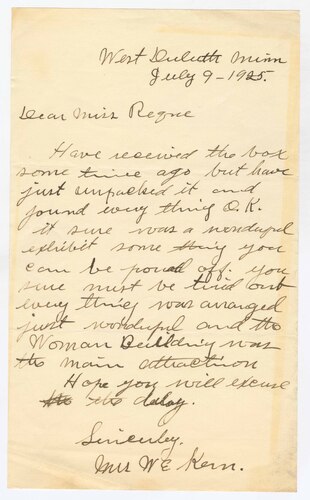 West Duluth Minn
July 9-1925.
Dear Miss Regne
Have received the box
some time ago but have
just unpacked it and
found every thing O.K.
it sure was a wonderful
exhibit some thing you
can be proud off. you
sure must be tird out
every thing was arranged
just wonderful and the
Woman Building was
the main attraction
Hope you will excuse
the the delay.
Sincerley.
Mrs W E Kern.